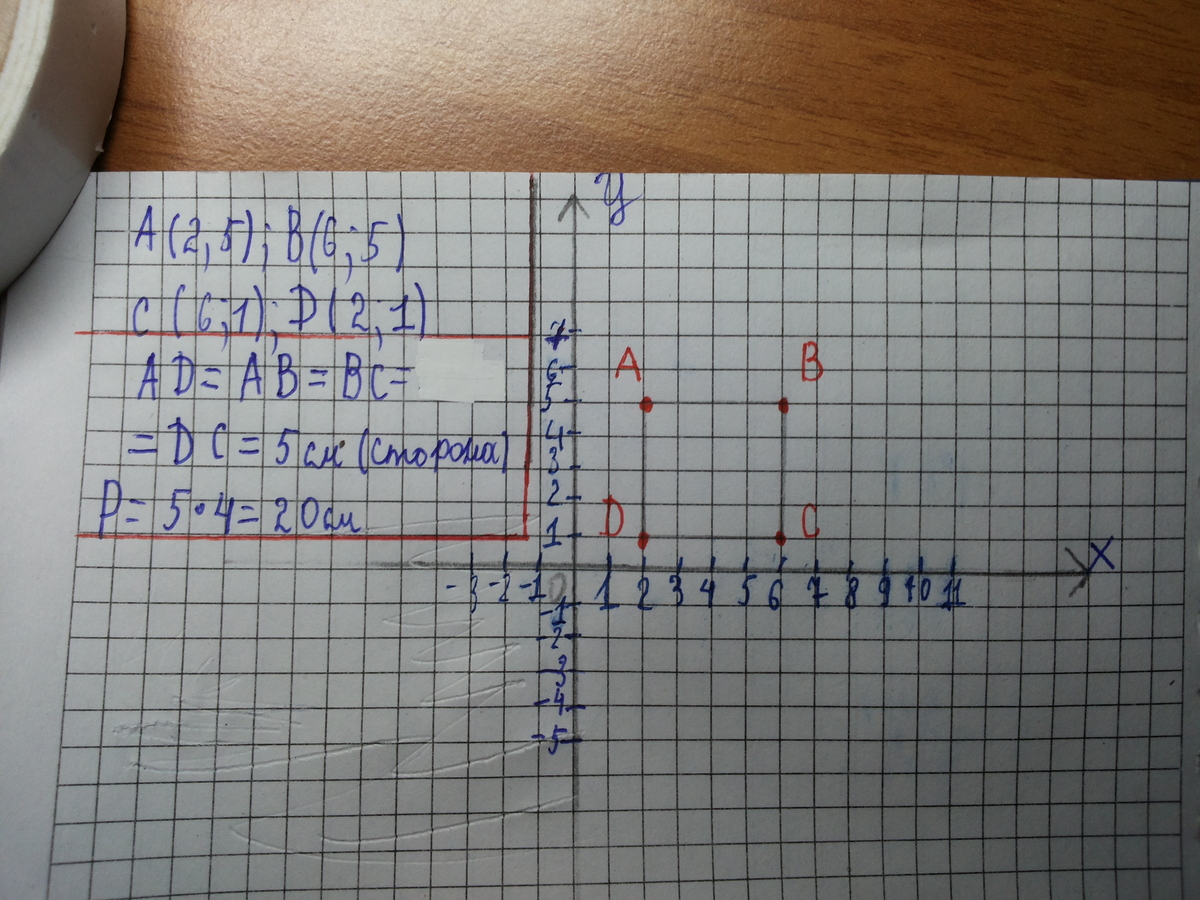 A(2,5); B(6;5)
C(6;1); D(2;1)
AD=AB=BC=
=DC=5см (сторона)
P=5·4=20см
y
7
6
5
4
3
2
1
A
B
D
C
x
-3 -2 -1 0 1 2 3 4 5 6 7 8 9 10 11
-1
-2
3
-4
-5